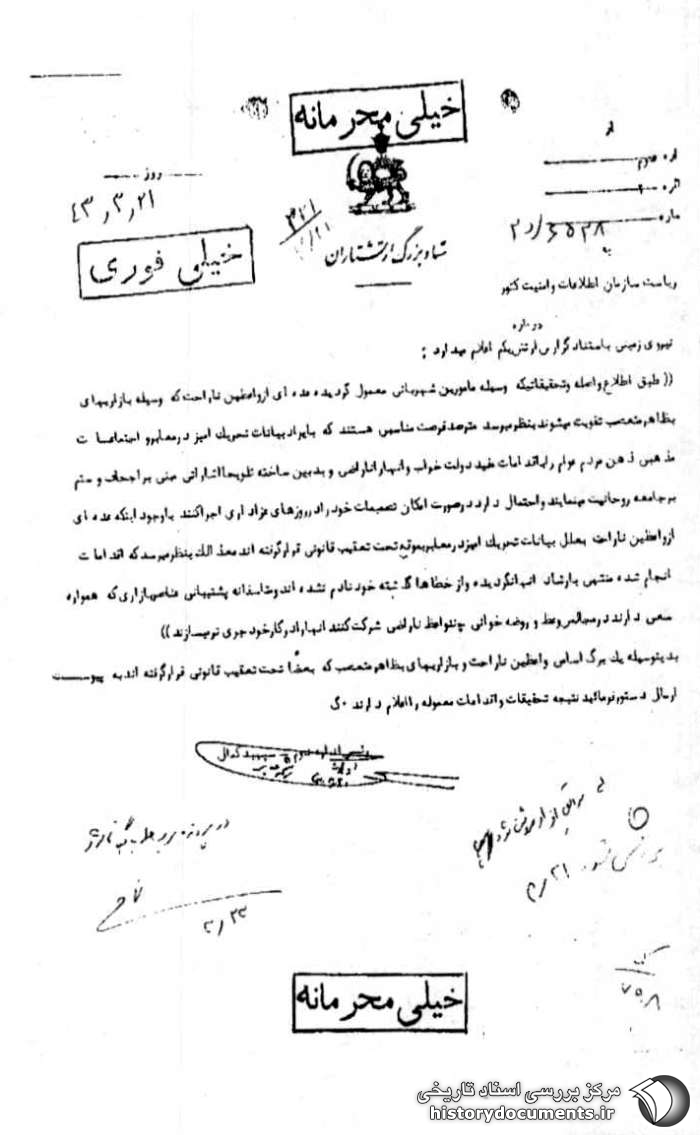 خیلی محرمانه
روز
۴۳٫۳٫۲۱
۳۲۱
خیلی فوری
شاه بزرگ ارتشتاران
از
اداره دوم
دائره
شماره
به
ریاست سازمان اطلاعات و امنیت کشور
درباره
نیروی زمینی باستناد گزارش لرتش یکم اعلام میدارد :
(( طبق اطلاع واصله وتحقیقاتیکه وسیله مامورین شهربانی معمول گردیده عده ای ازواعظین ناراحت که وسیله بازاریهای
بظاهر متعصب تقویت میشوند بنظر میرسد مترصد فرصت مناسبی هستند که بایراد بیانات تحریک امیز در معابر و اجتماعات
مذهبی ذهن مردم عوام رابه اقدامات مفید دولت خراب وانهارا ناراضی و بدبین ساخته تلویحا اشاراتی مبنی براجحاف و ستم
برجامعه روحانیت مینمایند واحتمال دارد درصورت امکان تصمیمات خود را در روزهای عزاداری اجرا کنند باوجود اینکه عده ای
ازواعظین ناراحت بعلل بیانات تحریک امیز در معابر بموقع تحت تعقیب قانونی قرار گرفته اند معذالک بنظر میرسد که اقدامات
انجام شده منتهی بارشاد انها نگردیده و از خطاها گذشته خود نادم نشده اند ومتاسفانه پشتیبانی عناصر بازاری که همواره
سعی دارند در مجالس وعظ و روضه خوانی چند واعظ ناراضی شرکت کنند انها را در کار خود جری تر میسازند ))
بدینوسیله یک برگ اسامی واعظین ناراحت و بازاریهای بظاهر متعصب که بعضا تحت تعقیب قانونی قرار گرفته اند به پیوست
ارسال دستور فرمائید نتیجه تحقیقات و اقدامات معموله را اعلام دارند ۰گ
رئیس اداره دوم سپهبد کمال
در پرونده
۳٫۲۳
۲۱٫۳
۷۵۸
خیلی محرمانه
مرکز بررسی اسناد تاریخی
historydocuments.ir